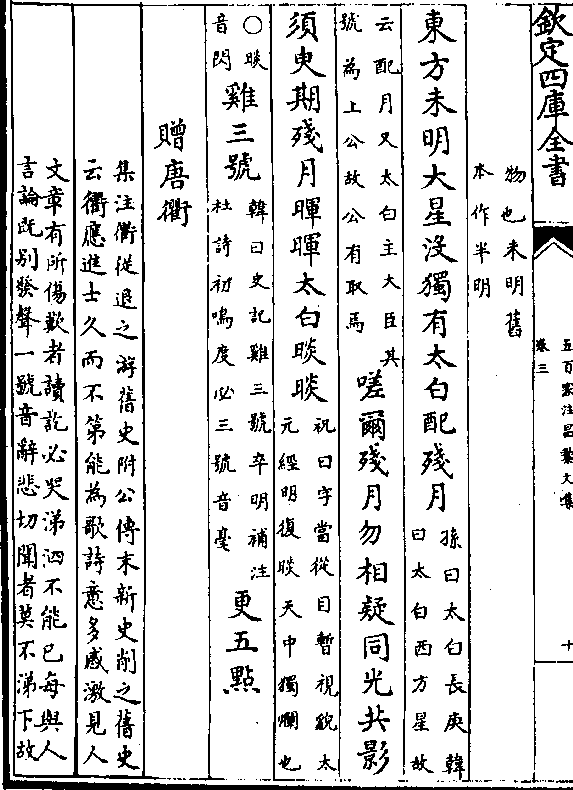 欽定四庫全書
五百家注昌黎文集
卷三
十
物也未明舊
本作半明
東方未明大星没獨有太白配殘月
孫曰太白長庚韓
曰太白西方星故
云配月又太白主大臣其
號為上公故公有取焉
嗟爾殘月勿相疑同光共影
須臾期殘月暉暉太白睒睒
祝曰字當從目暫視貌太
元經明復睒天中獨爛也
○睒
音閃
雞三號
韓曰史記雞三號卒明補注
杜詩初鳴度必三號音毫
更五點
贈唐衢
集注衢從退之游舊史附公傳末新史削之舊史
云衢應進士久而不第能為歌詩意多感激見人
文章有所傷歎者讀訖必哭涕泗不能已每與人
言論既别發聲一號音辭悲切聞者莫不涕下故